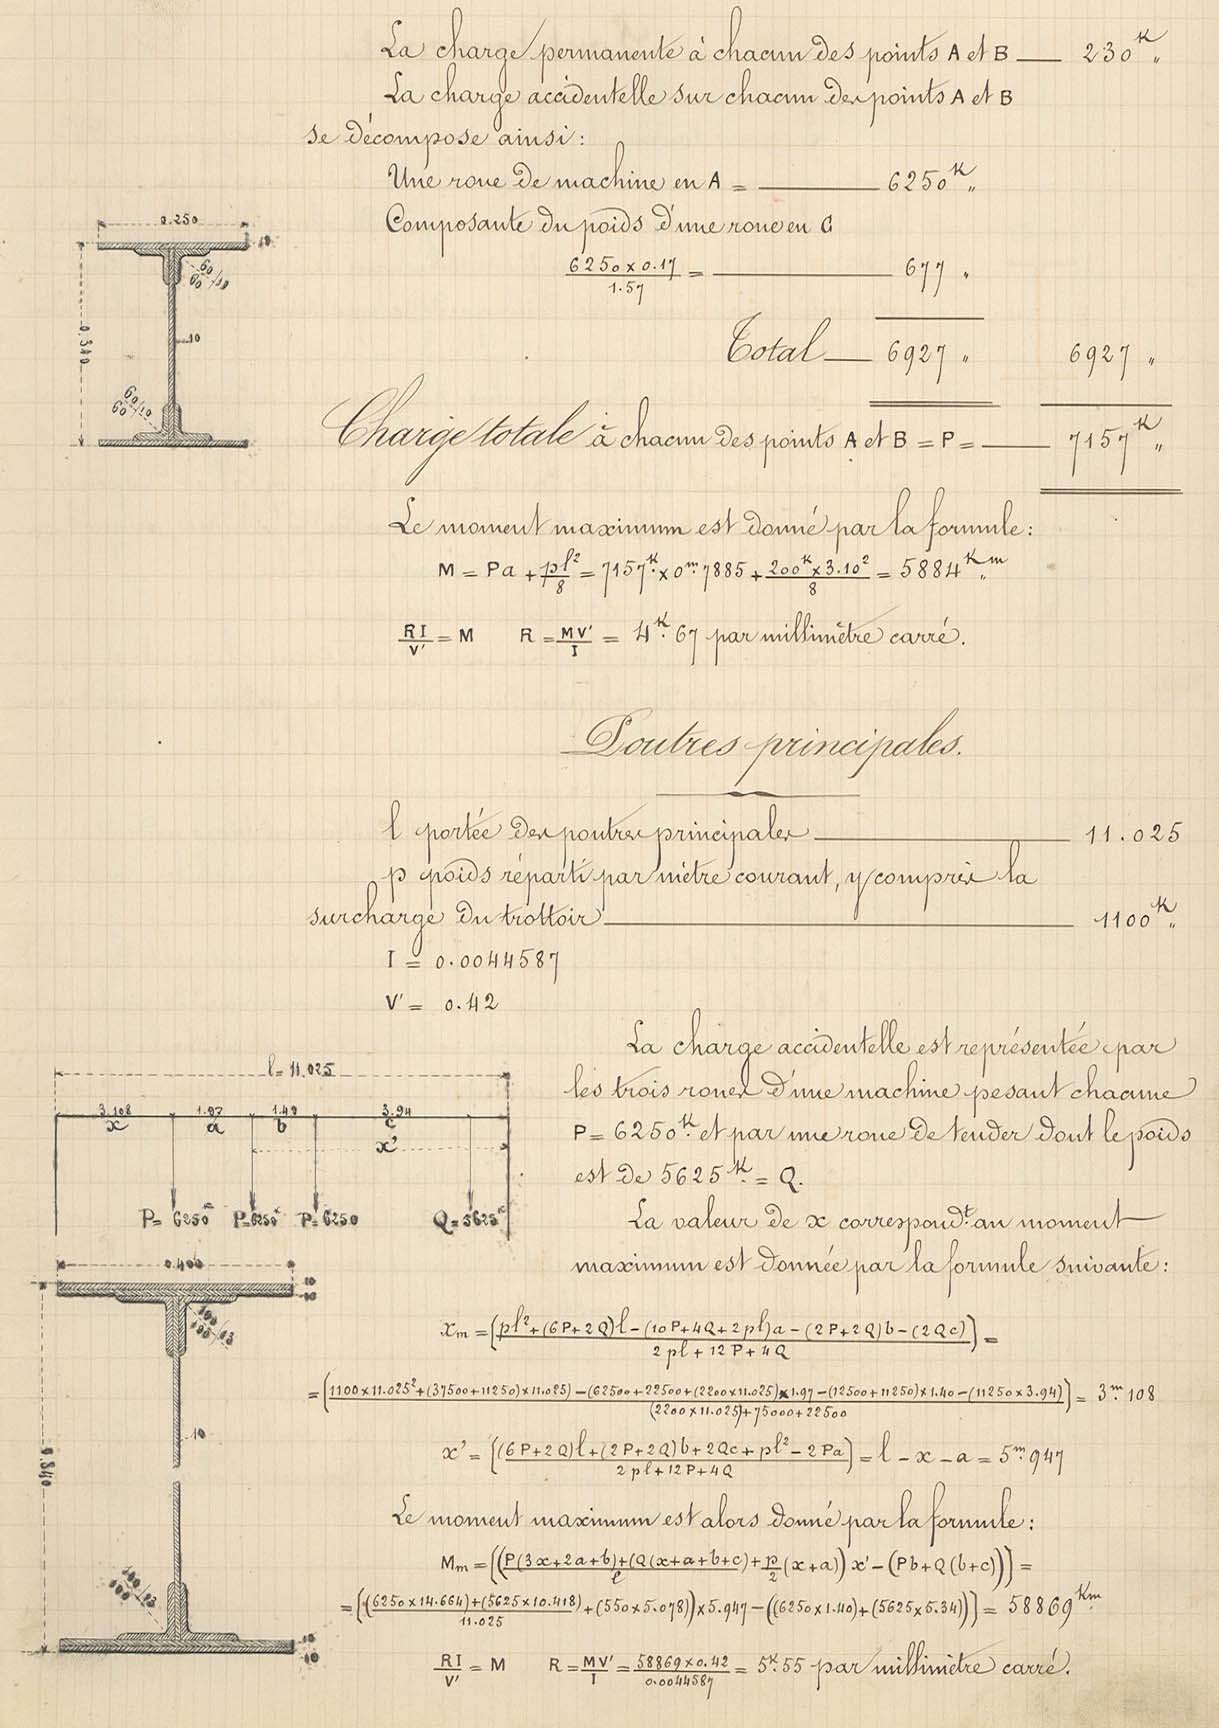 La charge permanente à chacun des points A et B — 230ᴷ "
La charge accidentelle sur chacun des points A et B
se décompose ainsi :
Une roue de machine en A = — 6250ᴷ "
Composante du poids d'une roue en C
6250 x 0.17 / 1.57 = — 677 "
Total — 6927 " 6927 "
Charge totale à chacun des points A et B = P = — 7157ᴷ "
0.250
10
60 60/10
0.340
10
60 60/10
Le moment maximum est donné par la formule :
M = Pa + pl²/8 = 7157ᴷ x 0ᵐ.7885 + 200ᴷ x 3.10²/8 = 5884ᴷᵐ "
RI/V' = M R = MV'/I = 4ᴷ.67 par millimètre carré.
Poutres principales.
l portée des poutres principales — 11.025
p poids réparti par mètre courant, y compris la
surcharge du trottoir — 1100ᴷ "
I = 0.0044587
V' = 0.42
La charge accidentelle est représentée par
les trois roues d'une machine pesant chacune
P = 6250ᴷ. et par une roue de tender dont le poids
est de 5625ᴷ. = Q.
La valeur de x correspondᵗ. au moment
maximum est donnée par la formule suivante :
l = 11.025
3.108 1.97 1.40 3.94
x a b c
x'
P = 6250ᴷ P = 6250ᴷ P = 6250 Q = 5625ᴷ
0.400
10
10
100 100/13
10
0.840
100 100/13
10
10
xm = [pl² + (6P + 2Q)l - (10P + 4Q + 2pl)a - (2P + 2Q)b - (2Qc) / 2pl + 12P + 4Q] =
= [1100 x 11.025² + (37500 + 11250) x 11.025) - (62500 + 22500 + (2200 x 11.025) x 1.97 - (12500 + 11250) x 1.40 - (11250 x 3.94) / (2200 x 11.025) + 75000 + 22500] = 3ᵐ.108
x' = [(6P + 2Q)l + (2P + 2Q)b + 2Qc + pl² - 2Pa / 2pl + 12P + 4Q] = l - x - a = 5ᵐ.947
Le moment maximum est alors donné par la formule :
Mm = [(P(3x + 2a + b) + (Q(x + a + b + c) / l + p/2 (x + a)) x' - (Pb + Q(b + c))] =
= [((6250 x 14.664) + (5625 x 10.418) / 11.025 + (550 x 5.078)) x 5.947 - ((6250 x 1.40) + (5625 x 5.34))] = 58869ᴷᵐ.
RI/V' = M R = MV'/I = 58869 x 0.42 / 0.0044587 = 5ᴷ.55 par millimètre carré.